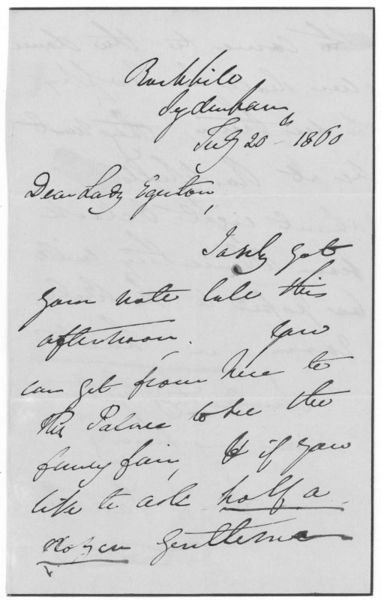 Rockhills
Sydenham
July 20th 1860
Dear Lady Egerton,
I only got
your note late this
afternoon, You
can get from here to
the Palace to see the
fancy fair, & if you
like to ask half a
dozen gentlemen